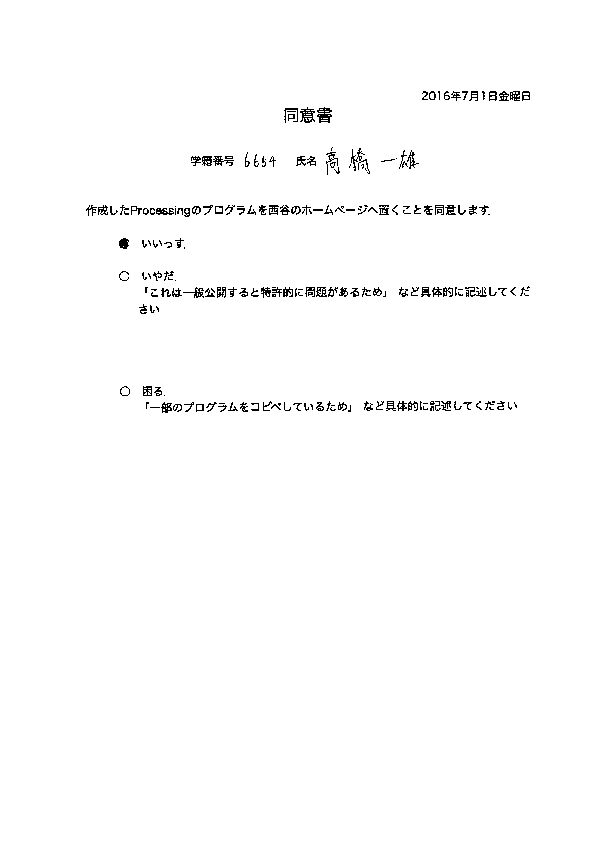 2016年7月1日金曜日
同意書
学籍番号 6654 氏名 高橋 一雄
作成したProcessingのプログラムを西谷のホームページへ置くことを同意します.
● いいっす.
○ いやだ.
「これは一般公開すると特許的に問題があるため」 など具体的に記述してくだ
さい
○ 困る.
「一部のプログラムをコピペしているため」 など具体的に記述してください